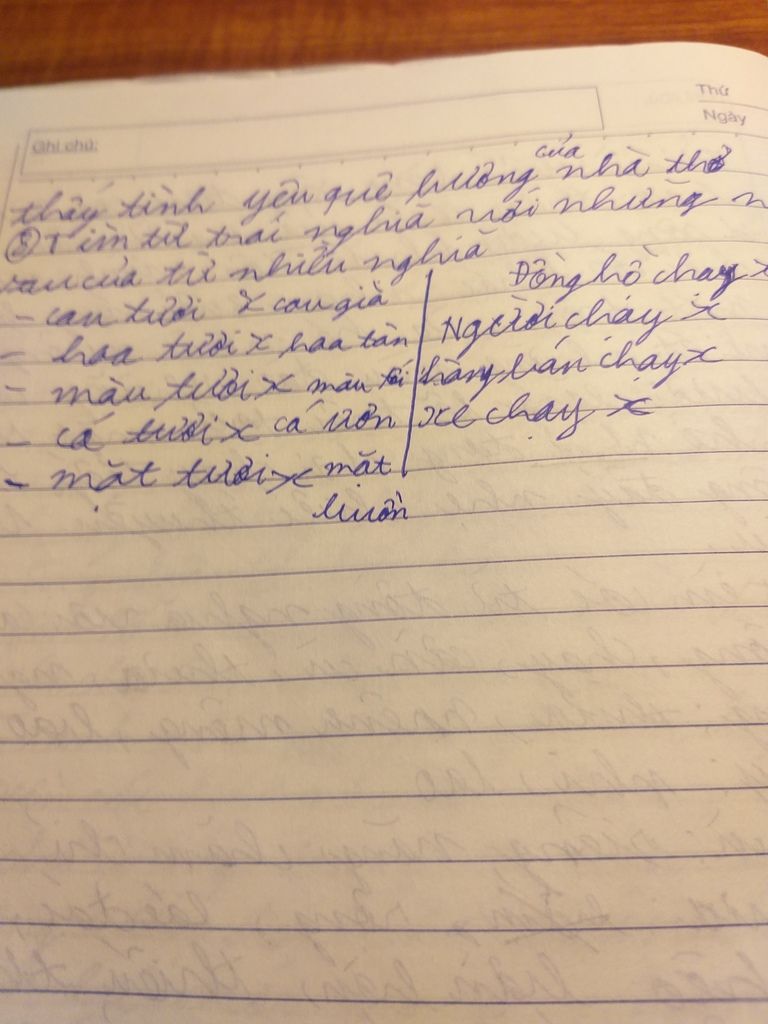 Thứ
Ngày
Ghi chú:
thấy tình yêu quê hương của nhà thơ
⑤ Tìm từ trái nghĩa với những
sau của từ nhiều nghĩa
- cau tươi x cau già
- hoa tươi x hoa tàn
- màu tươi x màu tối
- cá tươi x cá ươn
- mặt tươi x mặt
buồn
Đồng hồ chạy x
Người chạy x
hàng bán chạy x
xe chạy x